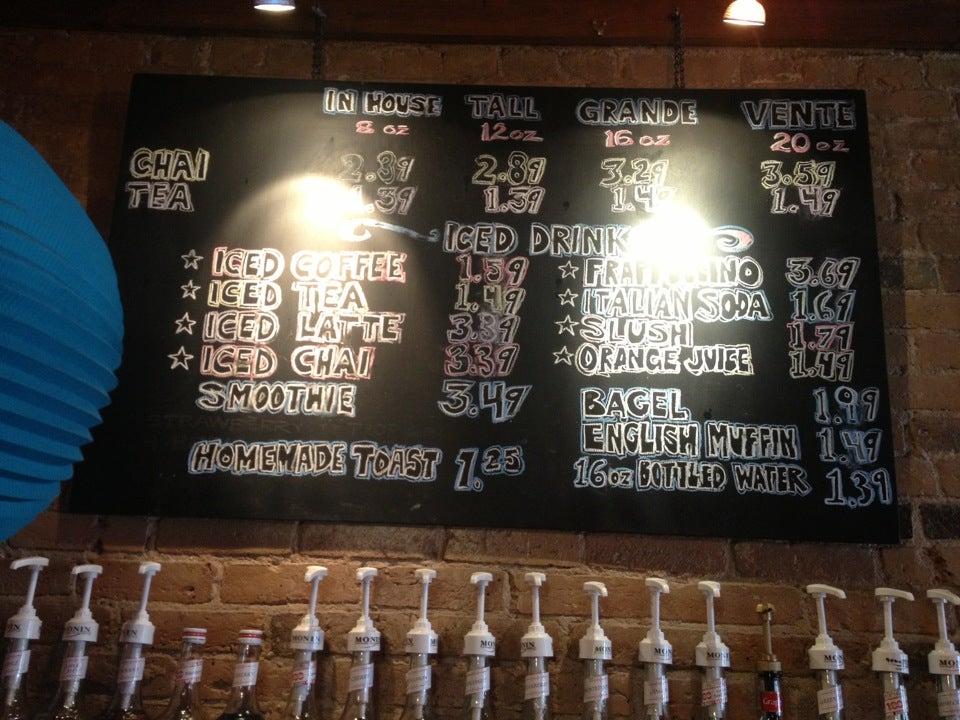 IN HOUSE TALL GRANDE VENTE
8 oz 12 oz 16 oz 20 oz
CHAI 2.39 2.89 3.29 3.59
TEA 1.39 1.39 1.49 1.49
ICED DRINK
ICED COFFEE 1.59
ICED TEA 1.49
ICED LATTE 3.39
ICED CHAI 3.39
SMOOTHIE 3.49
HOMEMADE TOAST 1.25
FRAPPUCCINO 3.69
ITALIAN SODA 1.69
SLUSH 1.79
ORANGE JUICE 1.49
BAGEL 1.99
ENGLISH MUFFIN 1.49
16 oz BOTTLED WATER 1.39
MONIN
MONIN
MONIN
MONIN